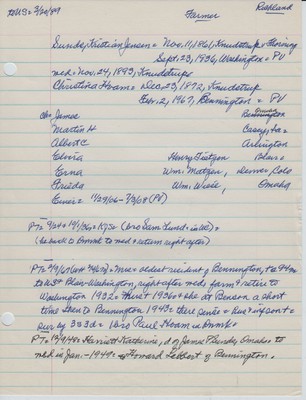 to US= 3/20/89
Farmer
Richland
Sunde, Kristian Jensen = Nov. 11, 1861, Knudstrup, Hjorring
Sept. 23, 1936, Washington = PV
md = Nov. 24, 1893, Knudstrup
Christina Hoam = Dec. 23, 1872, Knudstrup
Febr. 2, 1967, Bennington = PV
Ch= James
Bennington
Martin H
Casey, Ia =
Albert C
Arlington
Elvira Henry Tietgen Blair =
Erna Wm. Metzger, Denver, Colo
Frieda Wm. Wiese, Omaha
Elmer = 11/29/06 - 7/3/68 (PV)
PT= (bro Sam. Lund. in US) =
(he back to Dnmk to md & return right after)
PT= = Mrs = oldest resident of Bennington, to 94m
to US = Blair-Washington, right after md = farm = retire to
Washington 1932 = then 1936 + she at Benson a short
time then to Bennington 1943 = there since =
sur by 3s 3d = 1 bro Paul Hoam in Dnmk =
PT= 12/9/48 = Harriett Katherine, d of James Sunde, Omaha to
md in Jan. - 1949 = Howard Lebbert of Bennington.